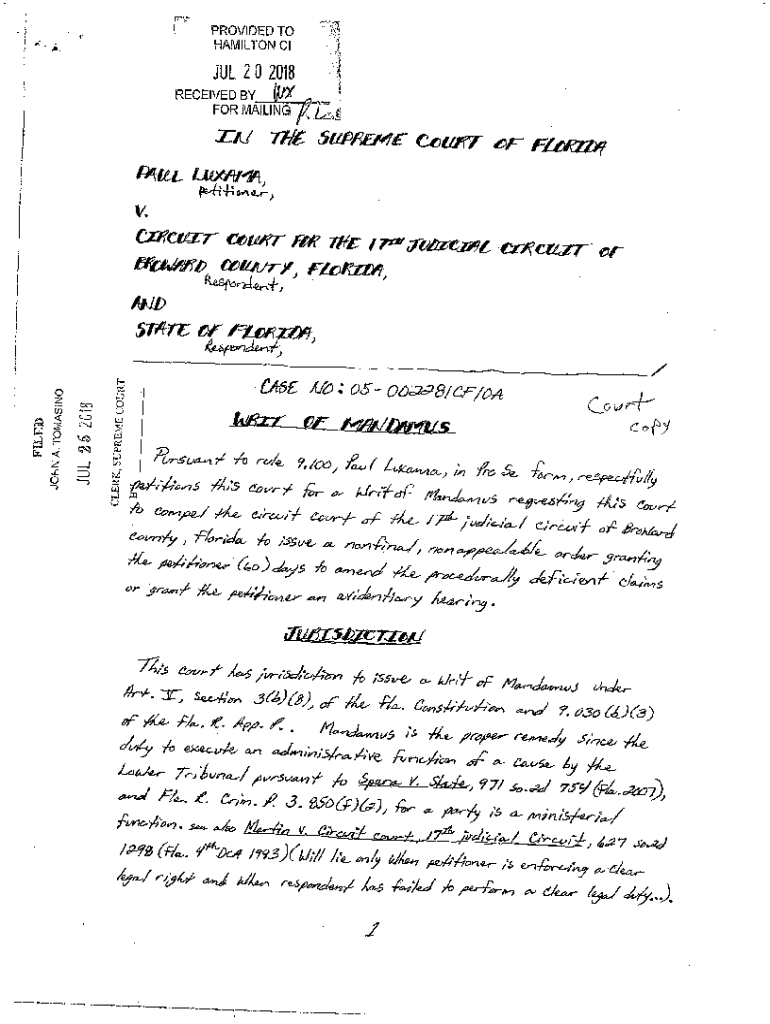 PROVIDED TO
HAMILTON CI
JUL 20 2018
RECEIVED BY
FOR MAILING
IN THE SUPREME COURT OF FLORIDA
PAUL LUXAMA,
petitioner,
V.
CIRCUIT COURT FOR THE 17TH JUDICIAL CIRCUIT OF
BROWARD COUNTY, FLORIDA,
Respondent,
AND
STATE OF FLORIDA,
Respondent,
/
FILED
JOHN A. TOMASINO
JUL 25 2018
CLERK, SUPREME COURT
CASE NO: 05-002281CF10A
Court
copy
WRIT OF MANDAMUS
Pursuant to rule 9.100, Paul Luxama, in Pro Se form, respectfully
petitions this court for a Writ of Mandamus requesting this court
to compel the circuit court of the 17th judicial circuit of Broward
county, Florida to issue a nonfinal, nonappealable order granting
the petitioner (60) days to amend the procedurally deficient claims
or grant the petitioner an evidentiary hearing.
JURISDICTION
This court has jurisdiction to issue a Writ of Mandamus under
Art. V, section 3(b)(8), of the Fla. Constitution and 9.030(b)(3)
of the Fla. R. App. P.. Mandamus is the proper remedy since the
duty to execute an administrative function of a cause by the
Lower Tribunal pursuant to Spera V. State, 971 so.2d 754 (Fla. 2007),
and Fla. R. Crim. P. 3.850(f)(2), for a party is a ministerial
function. see also Martin V. Circuit court, 17th judicial Circuit, 627 so.2d
1298 (Fla. 4th DCA 1993)(Will lie only when petitioner is enforcing a clear
legal right and when respondent has failed to perform a clear legal duty...).
1